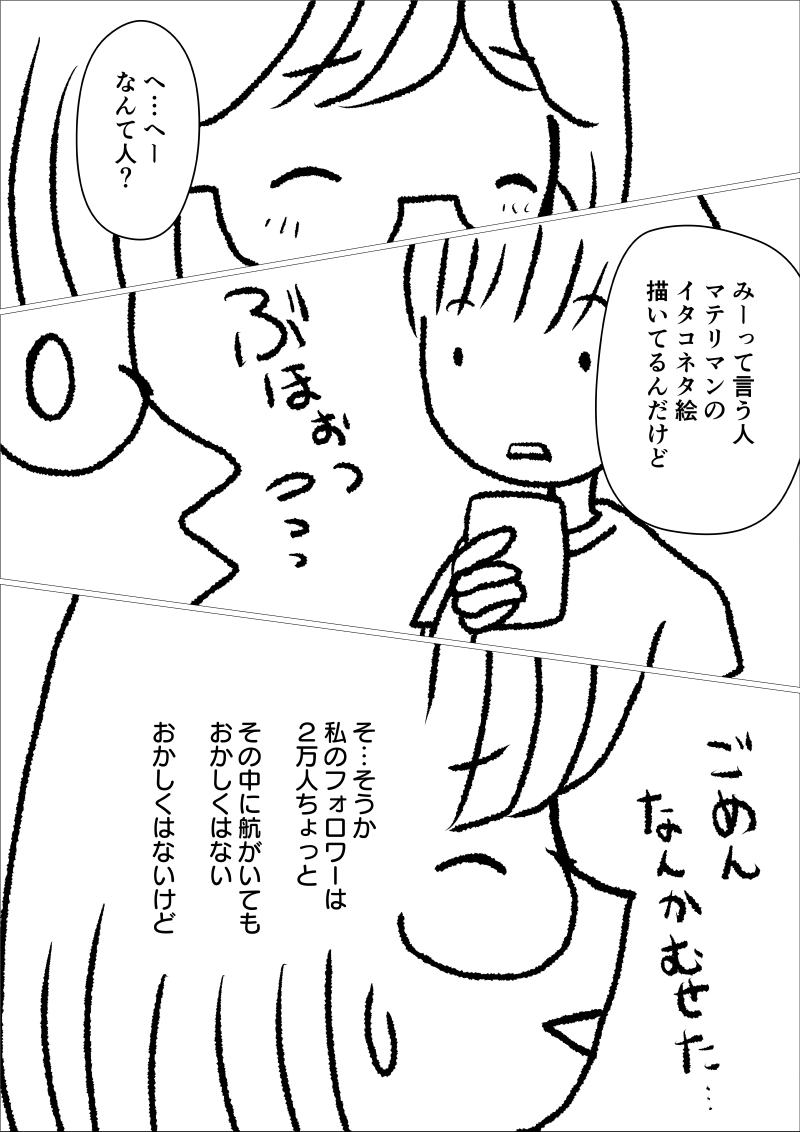 へ…へー
なんて人?
みーって言う人
マテリマンの
イタコネタ絵
描いてるんだけど
ぶほぉっ
っっっ
そ…そうか
私のフォロワーは
2万人ちょっと
その中に航がいても
おかしくはない
おかしくはないけど
ごめん
なんかむせた…